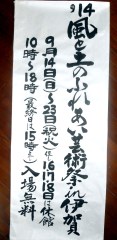 9/14
風と土のふれあい芸術祭in伊賀
9月14日(日)~23日(祝火)但16.17.18日は休館
10時~18時(最終日は15時まで)入場無料